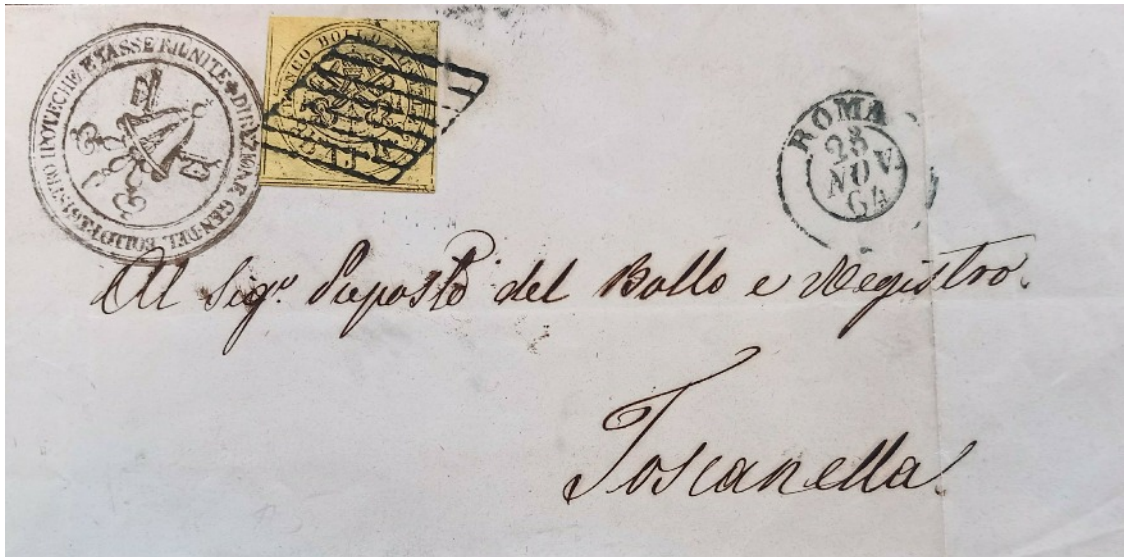 DIREZIONE GEN. DEL BOLLO REGISTRO IPOTECHE E TASSE RIUNITE
FRANCO BOLLO POSTALE
ROMA
23
NOV.
64
Al Sigr. Preposto del Bollo e Registro.
Toscanella